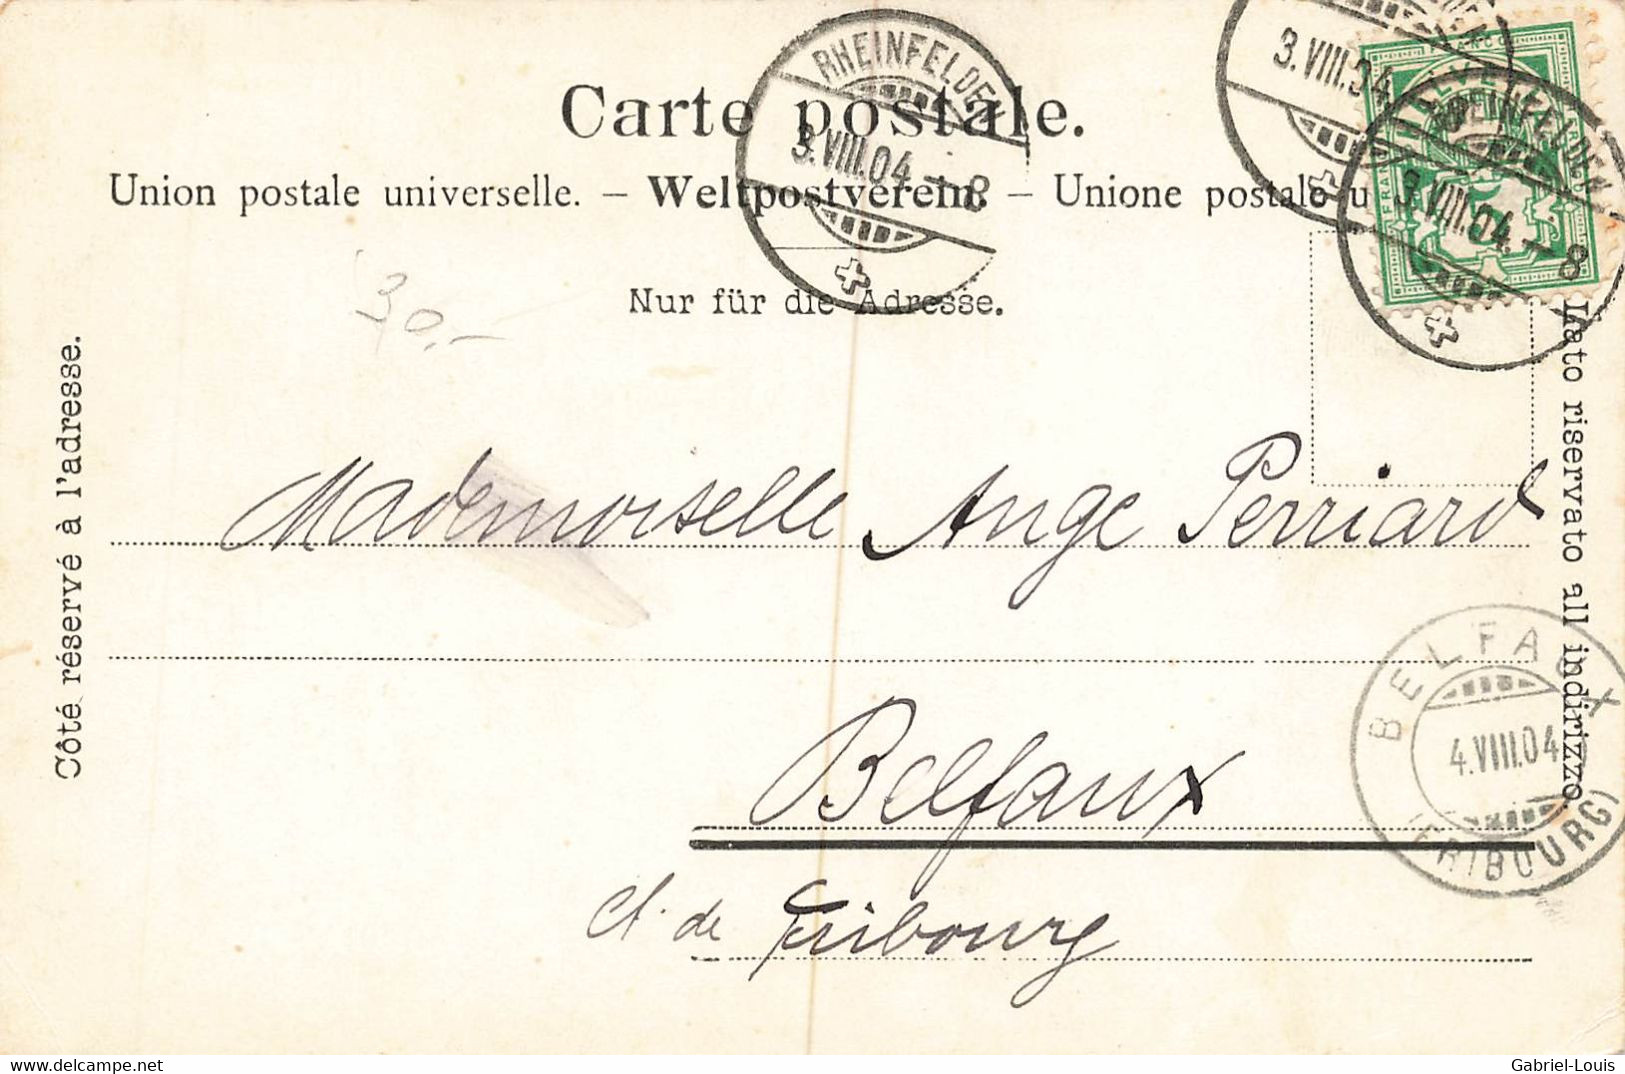 Carte postale.
Union postale universelle. – Weltpostverein. – Unione postale u
Nur für die Adresse.
Côté réservé à l'adresse.
Lato riservato all indirizzo.
RHEINFELDEN
3.VIII.04.–8
3.VIII.04.
RHEINFELDEN
3.VIII.04.–8
HELVETIA
FRANCO
30.-
Mademoiselle Ange Perriard
Belfaux
Ct. de Fribourg
BELFAUX
4.VIII.04
(FRIBOURG)
www.delcampe.net
Gabriel-Louis